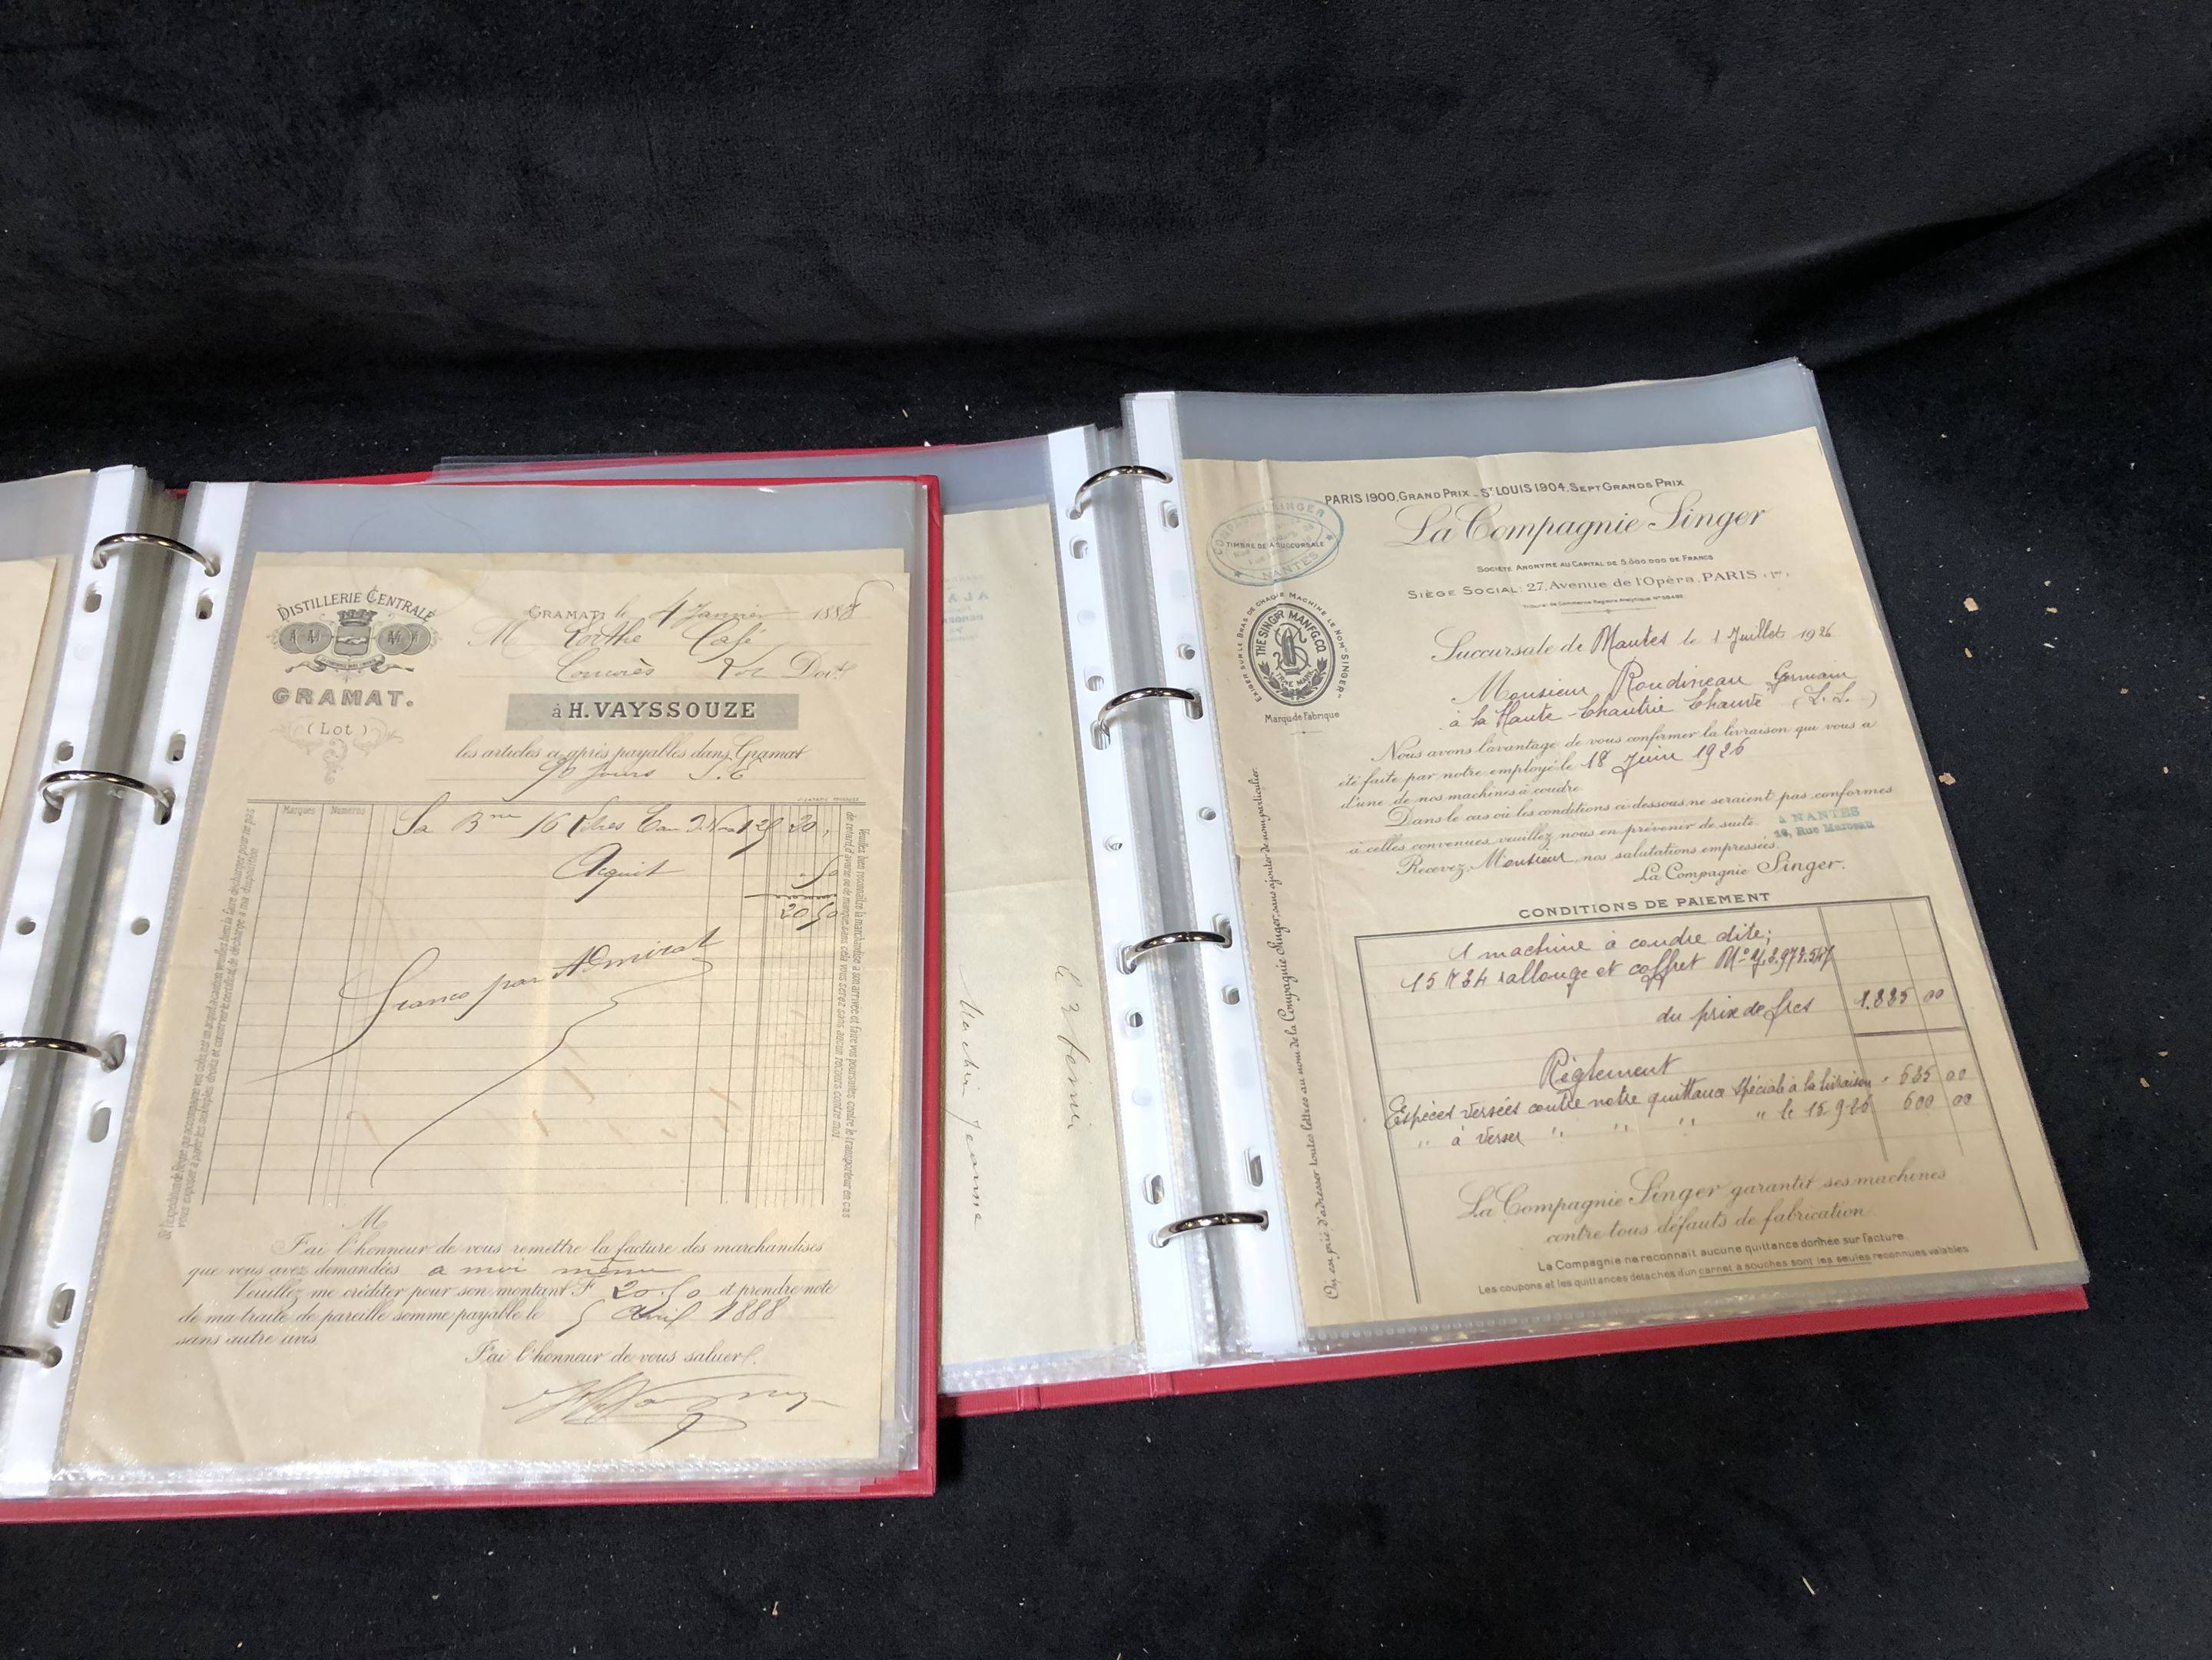 DISTILLERIE CENTRALE
GRAMAT.
(Lot)
GRAMAT, le 4 Janvier 1888
M Café
à H. VAYSSOUZE
les articles ci-après payables dans Gramat
90 jours
Marques Numéros
16 litres 20
Acquit . 50
20 50
Franco par
Veuillez bien reconnaître la marchandise à son arrivée et faire vos poursuites contre le transporteur en cas
de retard d'avarie ou de manque, sans cela vous serez sans aucun recours contre moi
M
J'ai l'honneur de vous remettre la facture des marchandises
que vous avez demandées a moi même
Veuillez me créditer pour son montant F 20.50 et prendre note
de ma traite de pareille somme payable le 5 Avril 1888
sans autre avis.
J'ai l'honneur de vous saluer.
PARIS 1900, GRAND PRIX _ ST LOUIS 1904, SEPT GRANDS PRIX
La Compagnie Singer
SOCIÉTÉ ANONYME AU CAPITAL DE 5.500.000 DE FRANCS
SIÈGE SOCIAL: 27, Avenue de l'Opéra, PARIS
COMPAGNIE SINGER
TIMBRE DE LA SUCCURSALE
NANTES
EXIGER SUR LE BRAS DE CHAQUE MACHINE LE NOM "SINGER"
THE SINGER MANFG. CO.
TRADE MARK
Marque de Fabrique
Succursale de Nantes le 1 Juillet 1926
Monsieur Roudineau Germain
à la Haute-Chantrie Chauvé (L. I.)
Nous avons l'avantage de vous confirmer la livraison qui vous a
été faite par notre employé le 18 Juin 1926
d'une de nos machines à coudre.
Dans le cas où les conditions ci-dessous ne seraient pas conformes
à celles convenues veuillez nous en prévenir de suite.
à NANTES
10, Rue Marceau
Recevez, Monsieur, nos salutations empressées.
La Compagnie Singer.
On est prié d'adresser toutes lettres au nom de la Compagnie Singer, sans ajouter de nom particulier.
CONDITIONS DE PAIEMENT
1 machine à coudre dite;
15 K 34 rallonge et coffret
du prix de frcs
Règlement
Espèces versées contre notre quittance spéciale à la livraison
" à verser " " " " le 15.9.26 600 00
La Compagnie Singer garantit ses machines
contre tous défauts de fabrication
La Compagnie ne reconnaît aucune quittance donnée sur facture
Les coupons et les quittances détachés d'un carnet à souches sont les seules reconnues valables